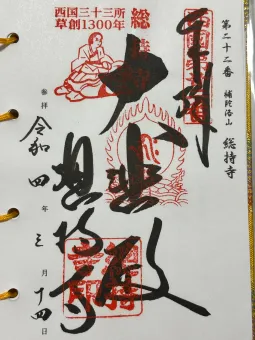 第二十二番 補陀洛山 総持寺
奉拝
西国三十三所
草創1300年
大悲殿
総持寺
参拝 令和四年三月十四日